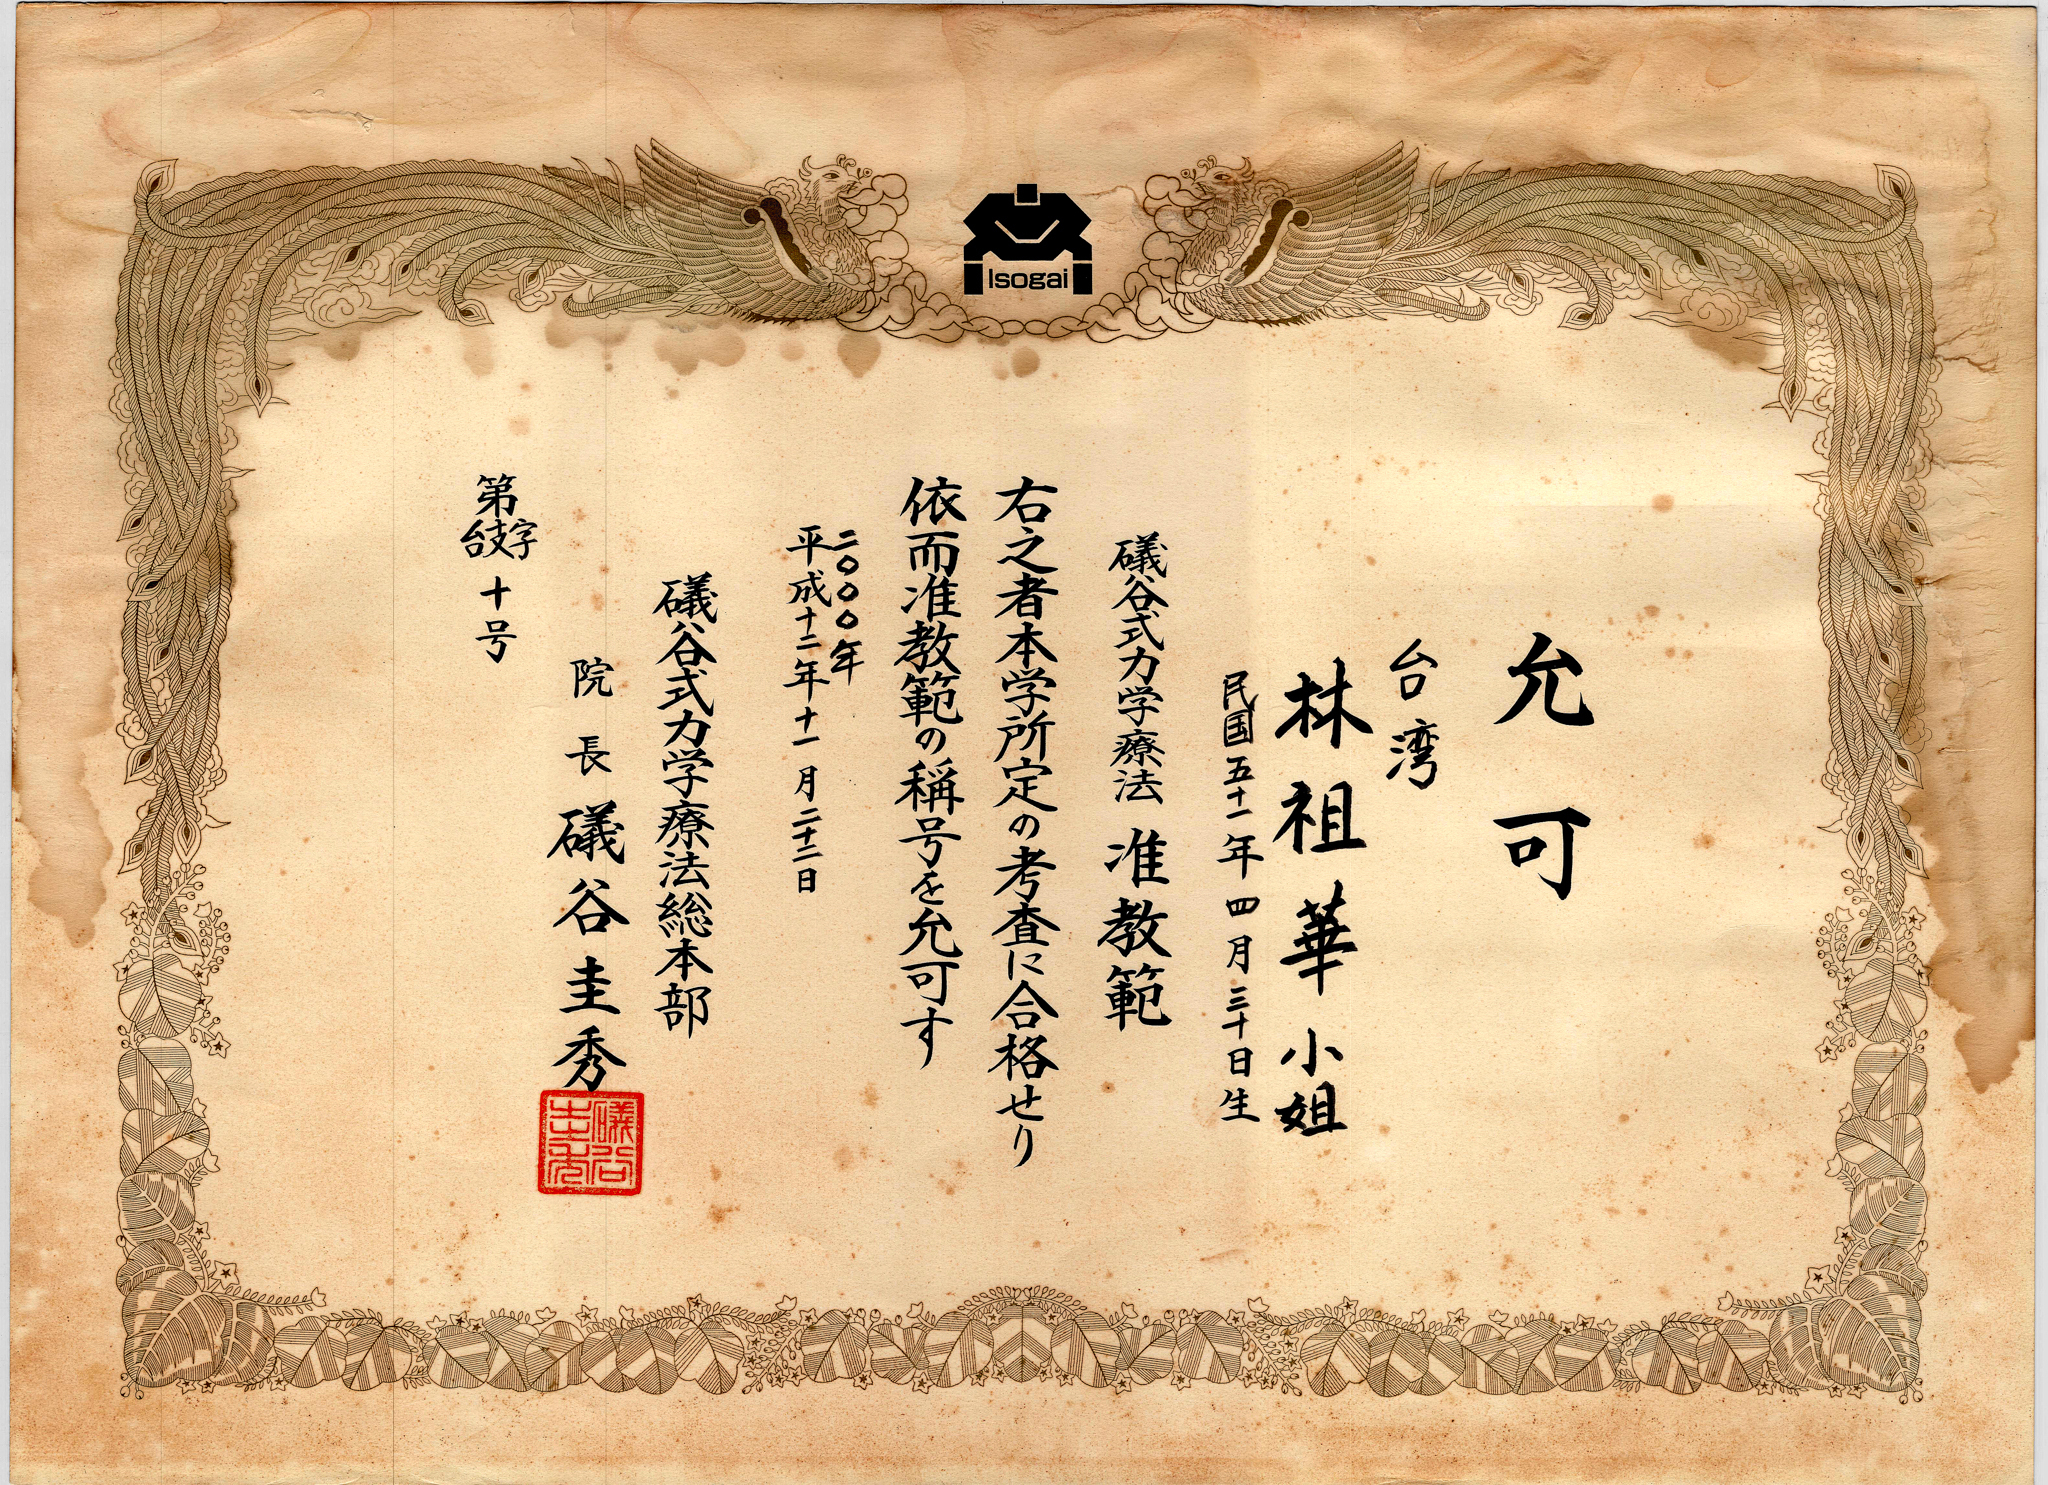 Isogai
允可
台湾
林祖華小姐
民国五十一年四月三十日生
礒谷式力学療法 准教範
右之者本学所定の考査に合格せり
依而准教範の稱号を允可す
二〇〇〇年
平成十二年十一月二十二日
礒谷式力学療法総本部
院長 礒谷圭秀
礒谷圭秀
第台支字十号